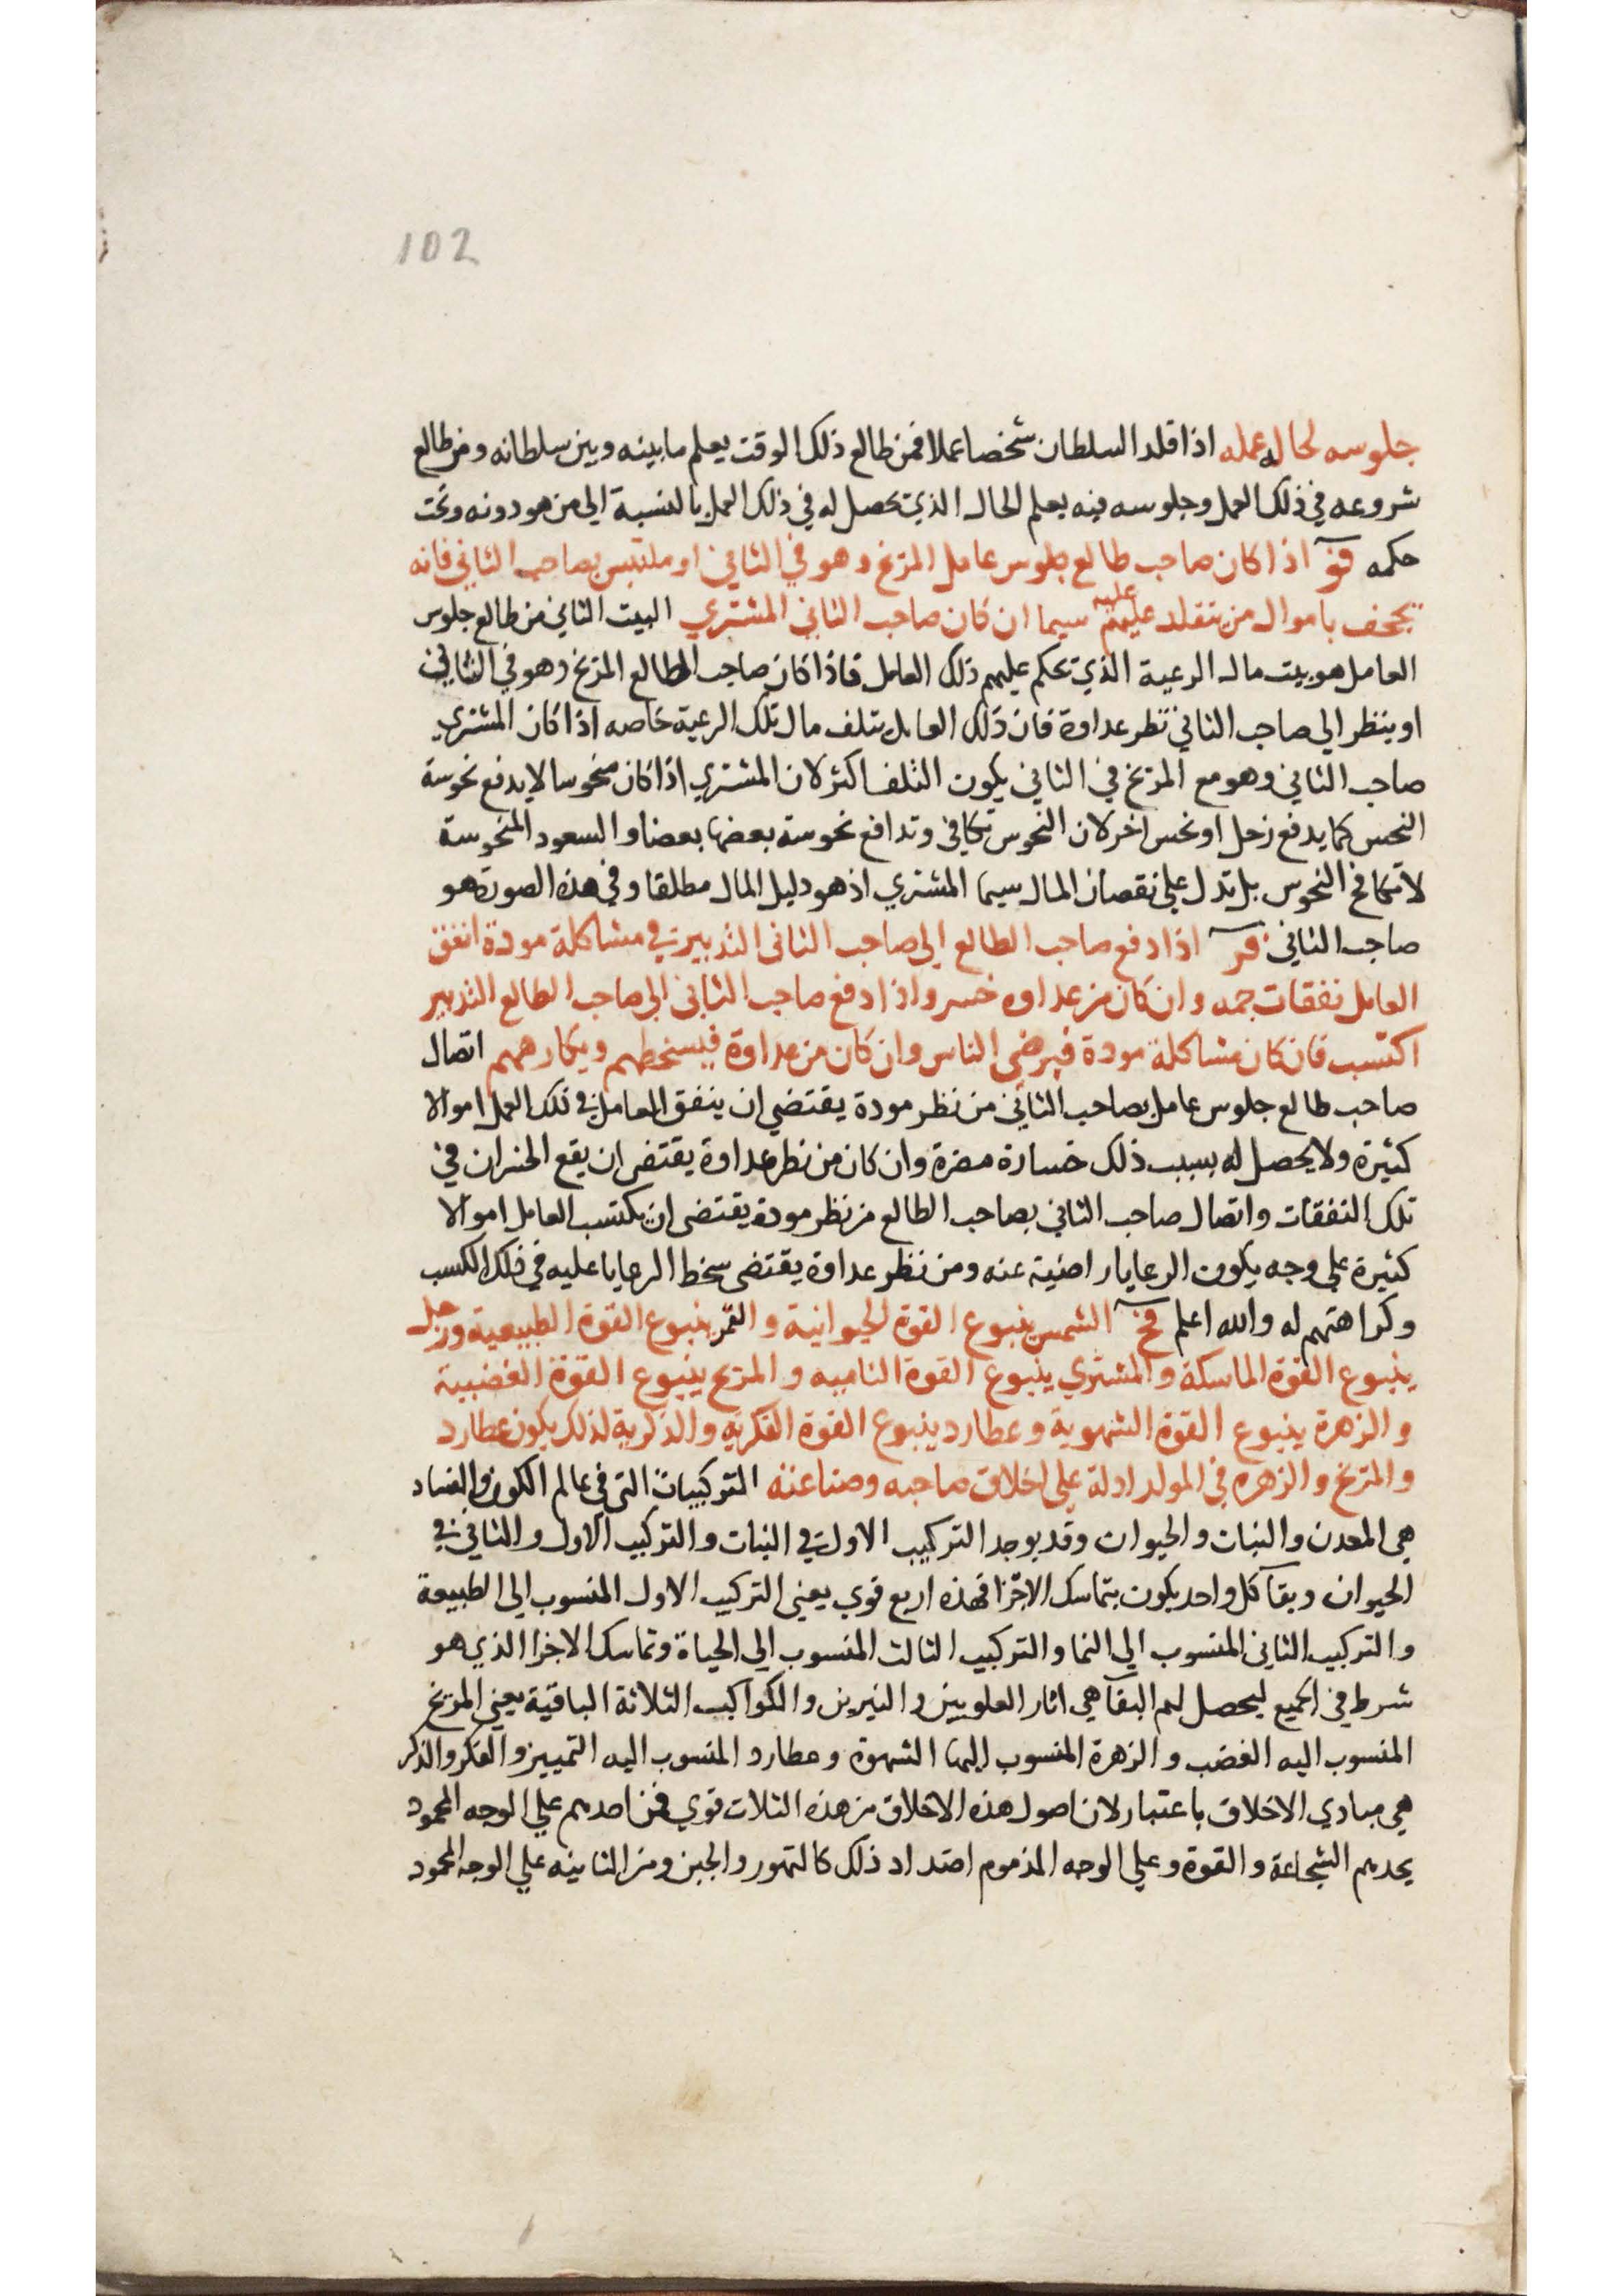 102
جلوسه لحال عمله اذا قلد السلطان شخصا عملا فمن طالع ذلك الوقت يعلم ما بينه وبين سلطانه ومن طالع
شروعه في ذلك العمل وجلوسه فيه يعلم الحال الذي يحصل له في ذلك العمل بالنسبة الي من هو دونه وتحت
حكمه قو اذا كان صاحب طالع جلوس عامل المريخ وهو في الثاني او ملتبس بصاحب الثاني فانه
يجحف باموال من تقلد عليهم عليه سيما ان كان صاحب الثاني المشتري البيت الثاني من طالع جلوس
العامل هو بيت مال الرعية الذي يحكم عليهم ذلك العامل فاذا كان صاحب الطالع المريخ وهو في الثاني
او ينظر الي صاحب الثاني نظر عداوة فان ذلك العامل يتلف مال تلك الرعية خاصه اذا كان المشتري
صاحب الثاني وهو مع المريخ في الثاني يكون التلف اكثر لان المشتري اذا كان منحوسا لا يدفع نحوسة
النحس كما يدفع زحل او نحس اخر لان النحوس تكافي وتدافع نحوسة بعضها بعضا والسعود المنحوسة
لا تكافح النحوس بل تدل علي نقصان المال سيما المشتري اذ هو دليل المال مطلقا وفي هذه الصورة هو
صاحب الثاني قز اذا دفع صاحب الطالع الي صاحب الثاني التدبير في مشاكلة مودة انفق
العامل نفقات جمه وان كان من عداوه خسر واذا دفع صاحب الثاني الي صاحب الطالع التدبير
اكتسب فان كان مشاكلة مودة فيرضى الناس وان كان من عداوة فيسخطهم ويكارههم اتصال
صاحب طالع جلوس عامل بصاحب الثاني من نظر مودة يقتضي ان ينفق العامل في تلك العمل اموالا
كثيرة ولا يحصل له بسبب ذلك خسارة مضرة وان كان من نظر عداوة يقتضى ان يقع الخسران في
تلك النفقات واتصال صاحب الثاني بصاحب الطالع من نظر مودة يقتضى ان يكتسب العامل اموالا
كثيرة علي وجه يكون الرعايا راضية عنه ومن نظر عداوة يقتضى سخط الرعايا عليه في ذلك الكسب
وكراهتهم له والله اعلم قح الشمس ينبوع القوة الحيوانية والقمر ينبوع القوة الطبيعية وزحل
ينبوع القوة الماسكة والمشتري ينبوع القوة الناميه والمريخ ينبوع القوة الغضبية
والزهرة ينبوع القوة الشهوية وعطارد ينبوع القوة الفكرية والذكرية لذلك يكون عطارد
والمريخ والزهره في المولد ادلة علي اخلاق صاحبه وصناعته التركيبات التي في عالم الكون والفساد
هي المعدن والنبات والحيوان وقد يوجد التركيب الاول في النبات والتركيب الاول والثاني في
الحيوان وبقآ كل واحد يكون بتماسك الاجزا فهذه اربع قوي يعني التركيب الاول المنسوب الي الطبيعة
والتركيب الثاني المنسوب الي النما والتركيب الثالث المنسوب الي الحياة وتماسك الاجزا الذي هو
شرط في الجميع ليحصل لهم البقآ هي اثار العلويين والنيرين والكواكب الثلاثة الباقية يعني المريخ
المنسوب اليه الغضب والزهرة المنسوب اليها الشهوة وعطارد المنسوب اليه التمييز والفكر والذكر
هي مبادي الاخلاق باعتبار لان اصول هذه الاخلاق من هذه الثلاث قوي فمن احدهم علي الوجه المحمود
يحدهم الشجاعة والقوة وعلي الوجه المذموم اضداد ذلك كالتهور والجبن ومن الثانيه علي الوجه المحمود